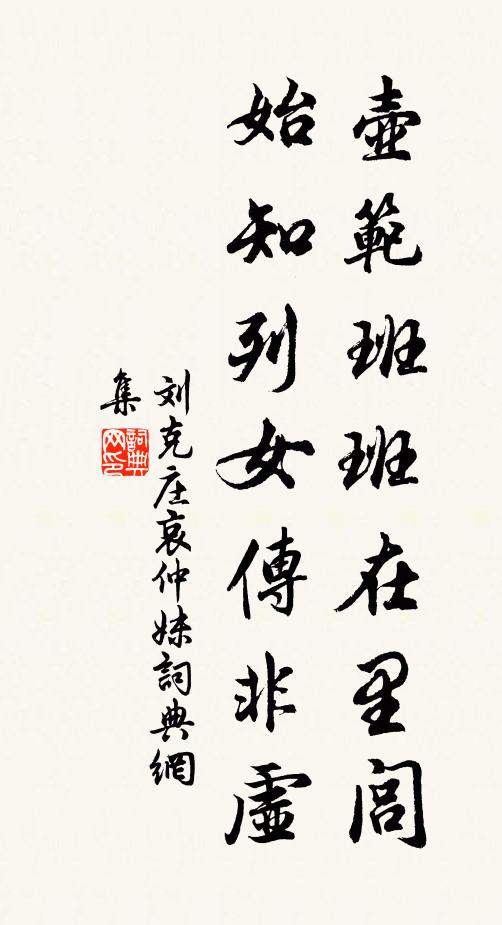 壼範班班在里閭
始知列女傳非虛
刘克庄哀仲妹詞典網
集
詞典网印